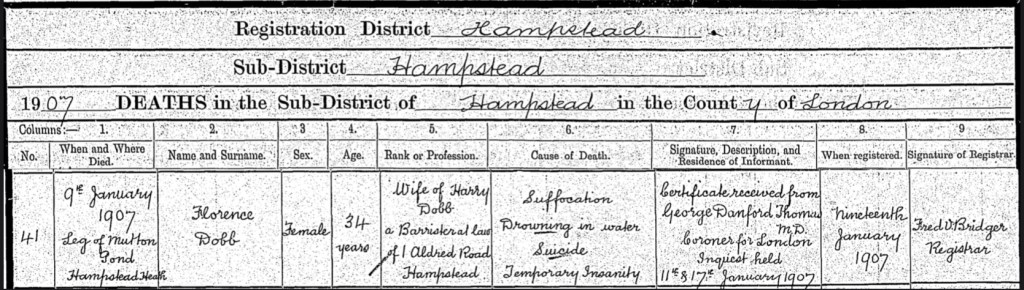 Registration District Hampstead
Sub-District Hampstead
1907 DEATHS in the Sub-District of Hampstead in the County of London
Columns:— 1. 2. 3 4. 5. 6. 7. 8. 9
No. When and Where Died. Name and Surname. Sex. Age. Rank or Profession. Cause of Death. Signature, Description, and Residence of Informant. When registered. Signature of Registrar.
41
9th January
1907
Leg of Mutton
Pond
Hampstead Heath
Florence
Dobb
Female
34
years
Wife of Harry
Dobb
a Barrister at law
of 1 Aldred Road
Hampstead
Suffocation
Drowning in water
Suicide
Temporary Insanity
Certificate received from
George Danford Thomas
M.D.
Coroner for London
Inquest held
11th & 17th January 1907
Nineteenth
January
1907
Fred V. Bridger
Registrar